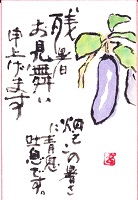 残暑
お見舞い
申上げます
畑もこの暑さ
に青息
吐息です。